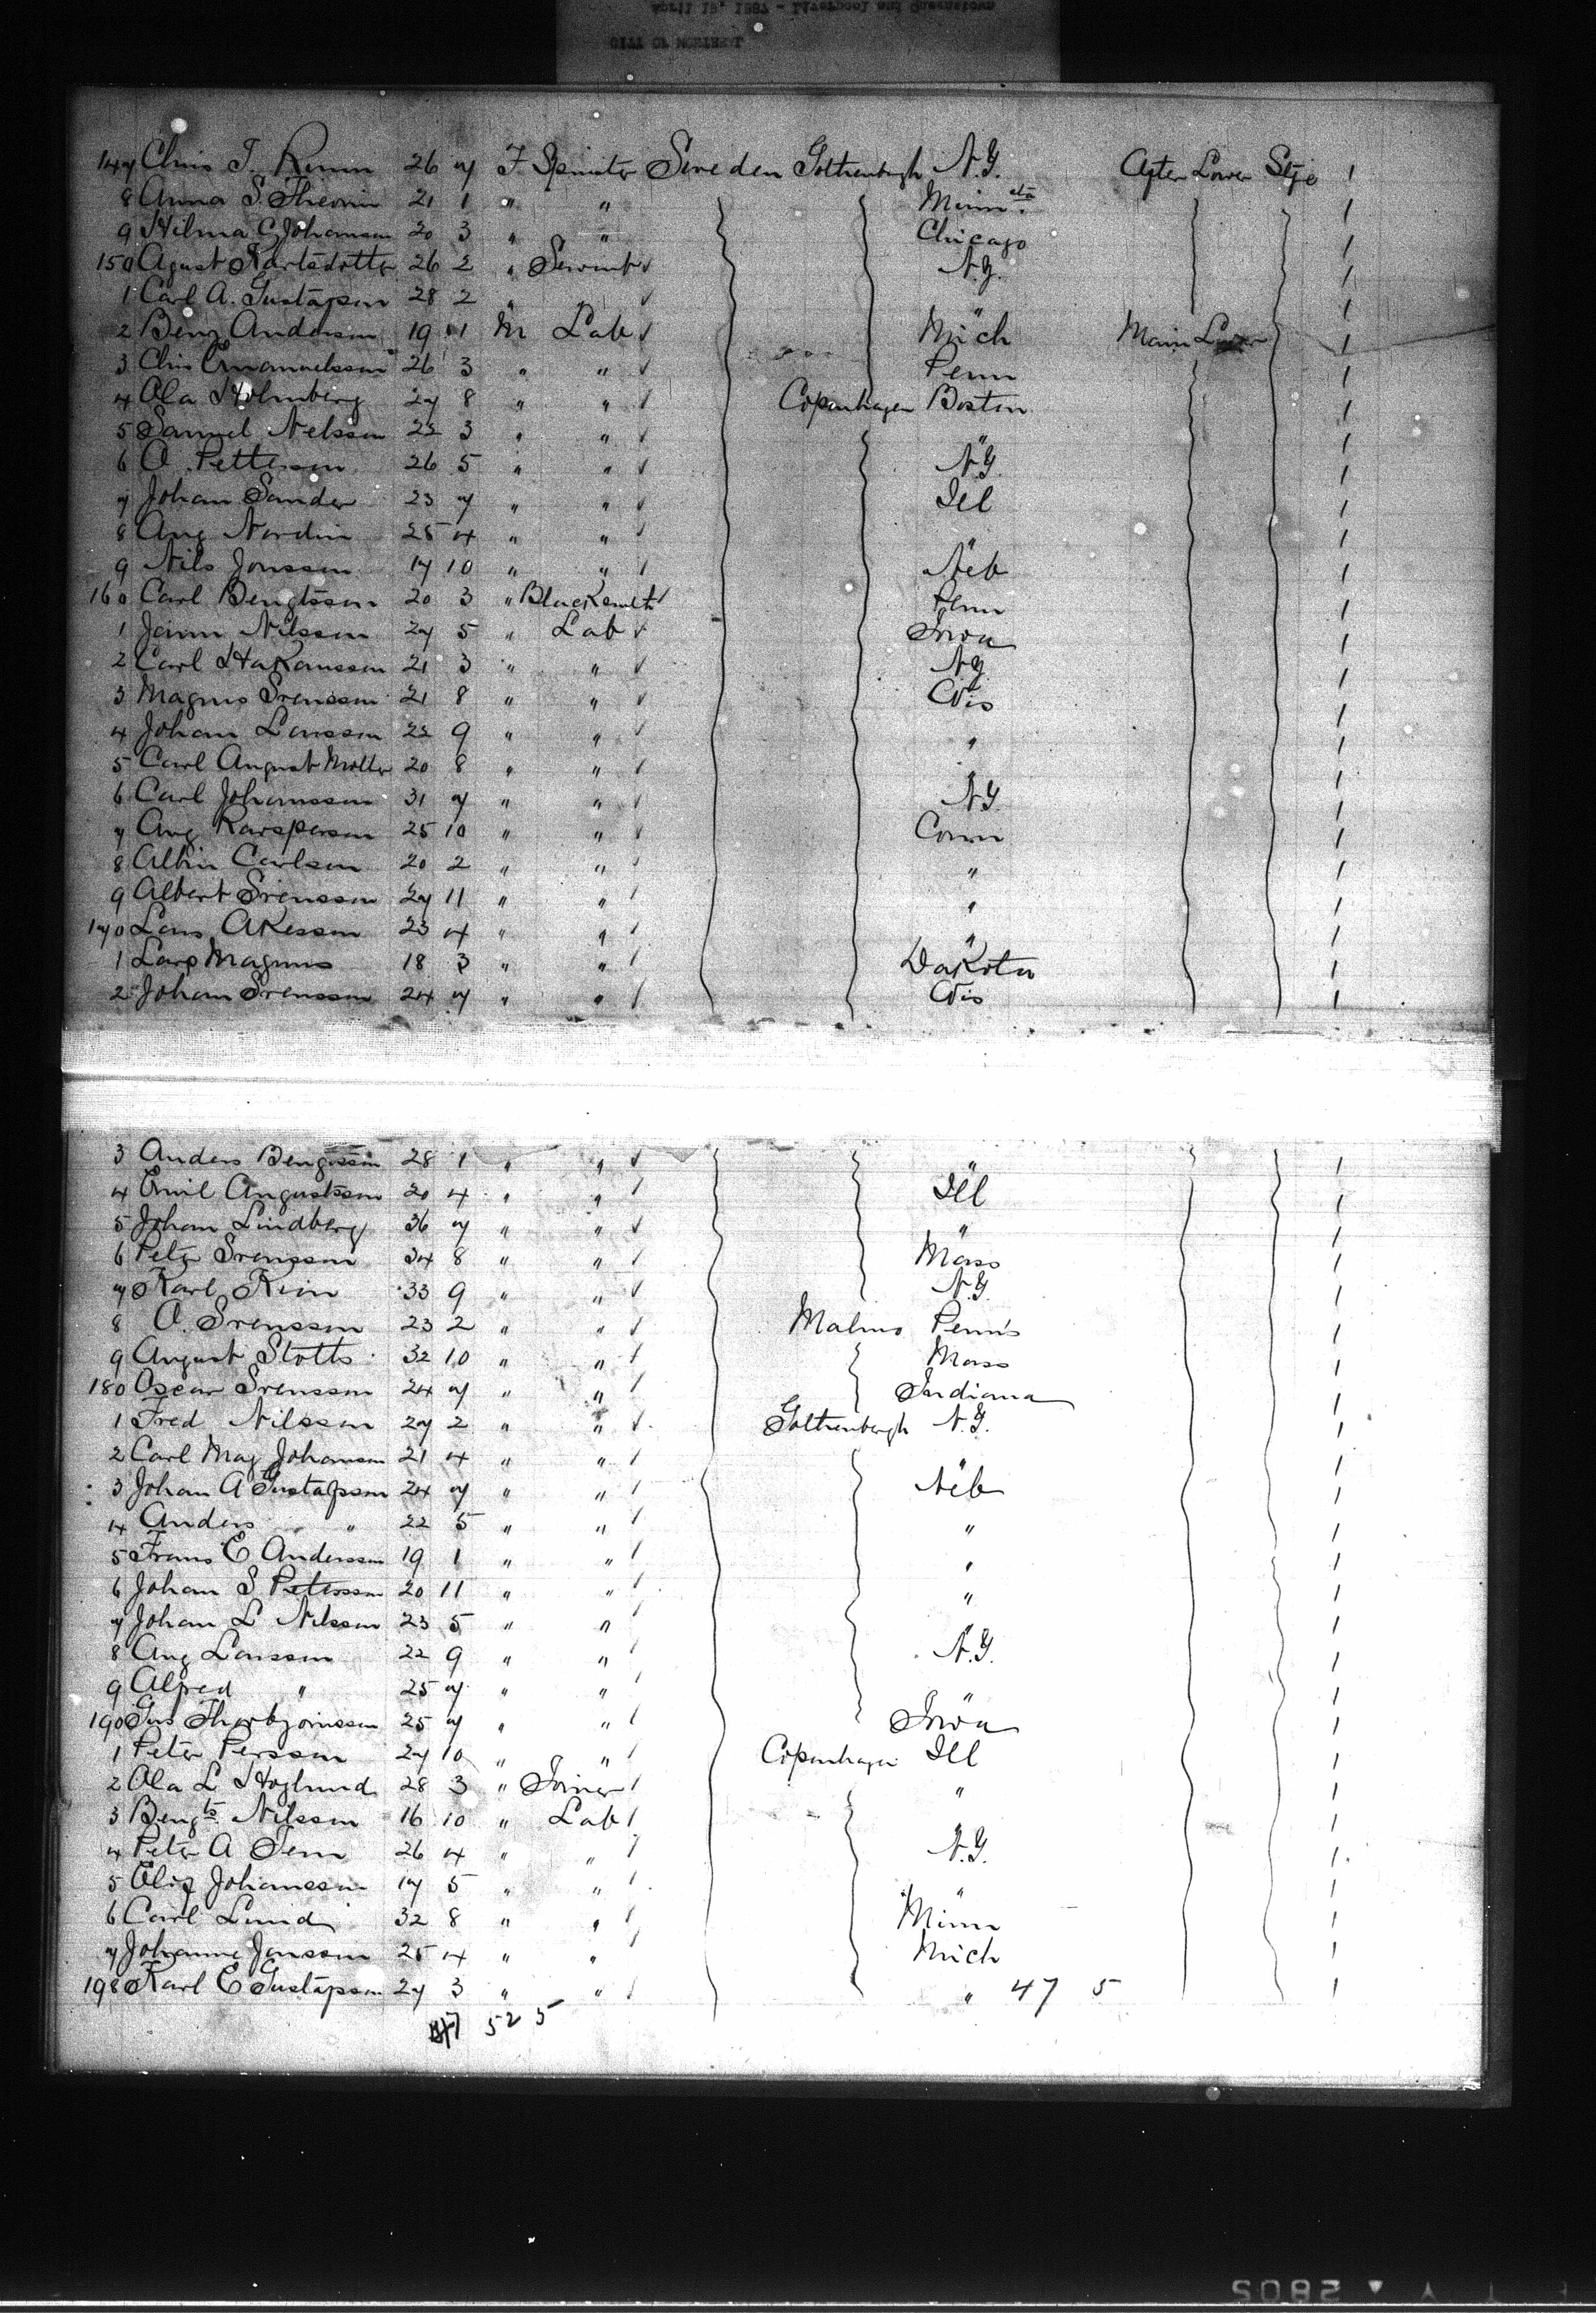 April 15, 1887 - Liverpool and Queenstown
CITY OF MONTREAL
147 Chris T. 26 7 F Spinster Sweden Gothenburgh N.Y. After Lower Stge 1
8 Anna S. Theorin 21 1 " " Minn eta 1
9 Hilma C Johansson 20 3 " " Chicago 1
150 Agust Karlsdotter 26 2 " Servant N.Y. 1
1 Carl A. Gustafson 28 2 " " " 1
2 Beng Anderson 19 11 M Lab Mich Main Lower 1
3 Chris Emanuelsson 26 3 " " Penn 1
4 Ola Holmberg 27 8 " " Copenhagen Boston 1
5 Samuel Nelsson 22 3 " " " 1
6 O. Petterson 26 5 " " N.Y. 1
7 Johan Sander 23 7 " " Ill 1
8 Aug Nordin 25 4 " " " 1
9 Nils Jonsson 17 10 " " Neb 1
160 Carl Bengtsson 20 3 " Blacksmith Penn 1
1 Nilsson 27 5 " Lab Iowa 1
2 Carl Hakansson 21 3 " " N.Y. 1
3 Magnus Svensson 21 8 " " Wis 1
4 Johan Larsson 22 9 " " " 1
5 Carl August Moller 20 8 " " " 1
6 Carl Johansson 31 7 " " N.Y. 1
7 Aug Karsperson 25 10 " " Conn 1
8 Albin Carlson 20 2 " " " 1
9 Albert Svensson 27 11 " " " 1
170 Lars Akesson 23 4 " " " 1
1 Lars Magnus 18 3 " " Dakota 1
2 Johan Svensson 24 7 " " Wis 1
3 Anders Bengtsson 28 1 " " " 1
4 Emil Augustsson 20 4 " " Ill 1
5 Johan Lindberg 36 7 " " " 1
6 Peter Svensson 34 8 " " Mass 1
7 Karl 33 9 " " N.Y. 1
8 O. Svensson 23 2 " " Malmo Penn's 1
9 August Stolts 32 10 " " Mass 1
180 Oscar Svensson 24 7 " " Indiana 1
1 Fred Nilsson 27 2 " " Gothenbergh N.Y. 1
2 Carl Mag Johanson 21 4 " " " 1
3 Johan A Gustafsson 24 7 " " Neb 1
4 Anders " 22 5 " " " 1
5 Frans E Andersson 19 1 " " " 1
6 Johan S Petersson 20 11 " " " 1
7 Johan L Nilsson 23 5 " " " 1
8 Aug Larsson 22 9 " " N.Y. 1
9 Alfred " 25 7 " " " 1
190 Gus Thorbjornsson 25 7 " " Iowa 1
1 Peter Persson 27 10 " " Copenhagen Ill 1
2 Ola L Hoglund 28 3 " Joiner " 1
3 Bengts Nilsson 16 10 " Lab " 1
4 Peter A 26 4 " " N.Y. 1
5 Johansson 17 5 " " " 1
6 Carl Lund 32 8 " " Minn 1
7 Johanne Jonsson 25 4 " " Mich 1
198 Karl E Gustafson 27 3 " " " 47 5 1
47 52 5
2805